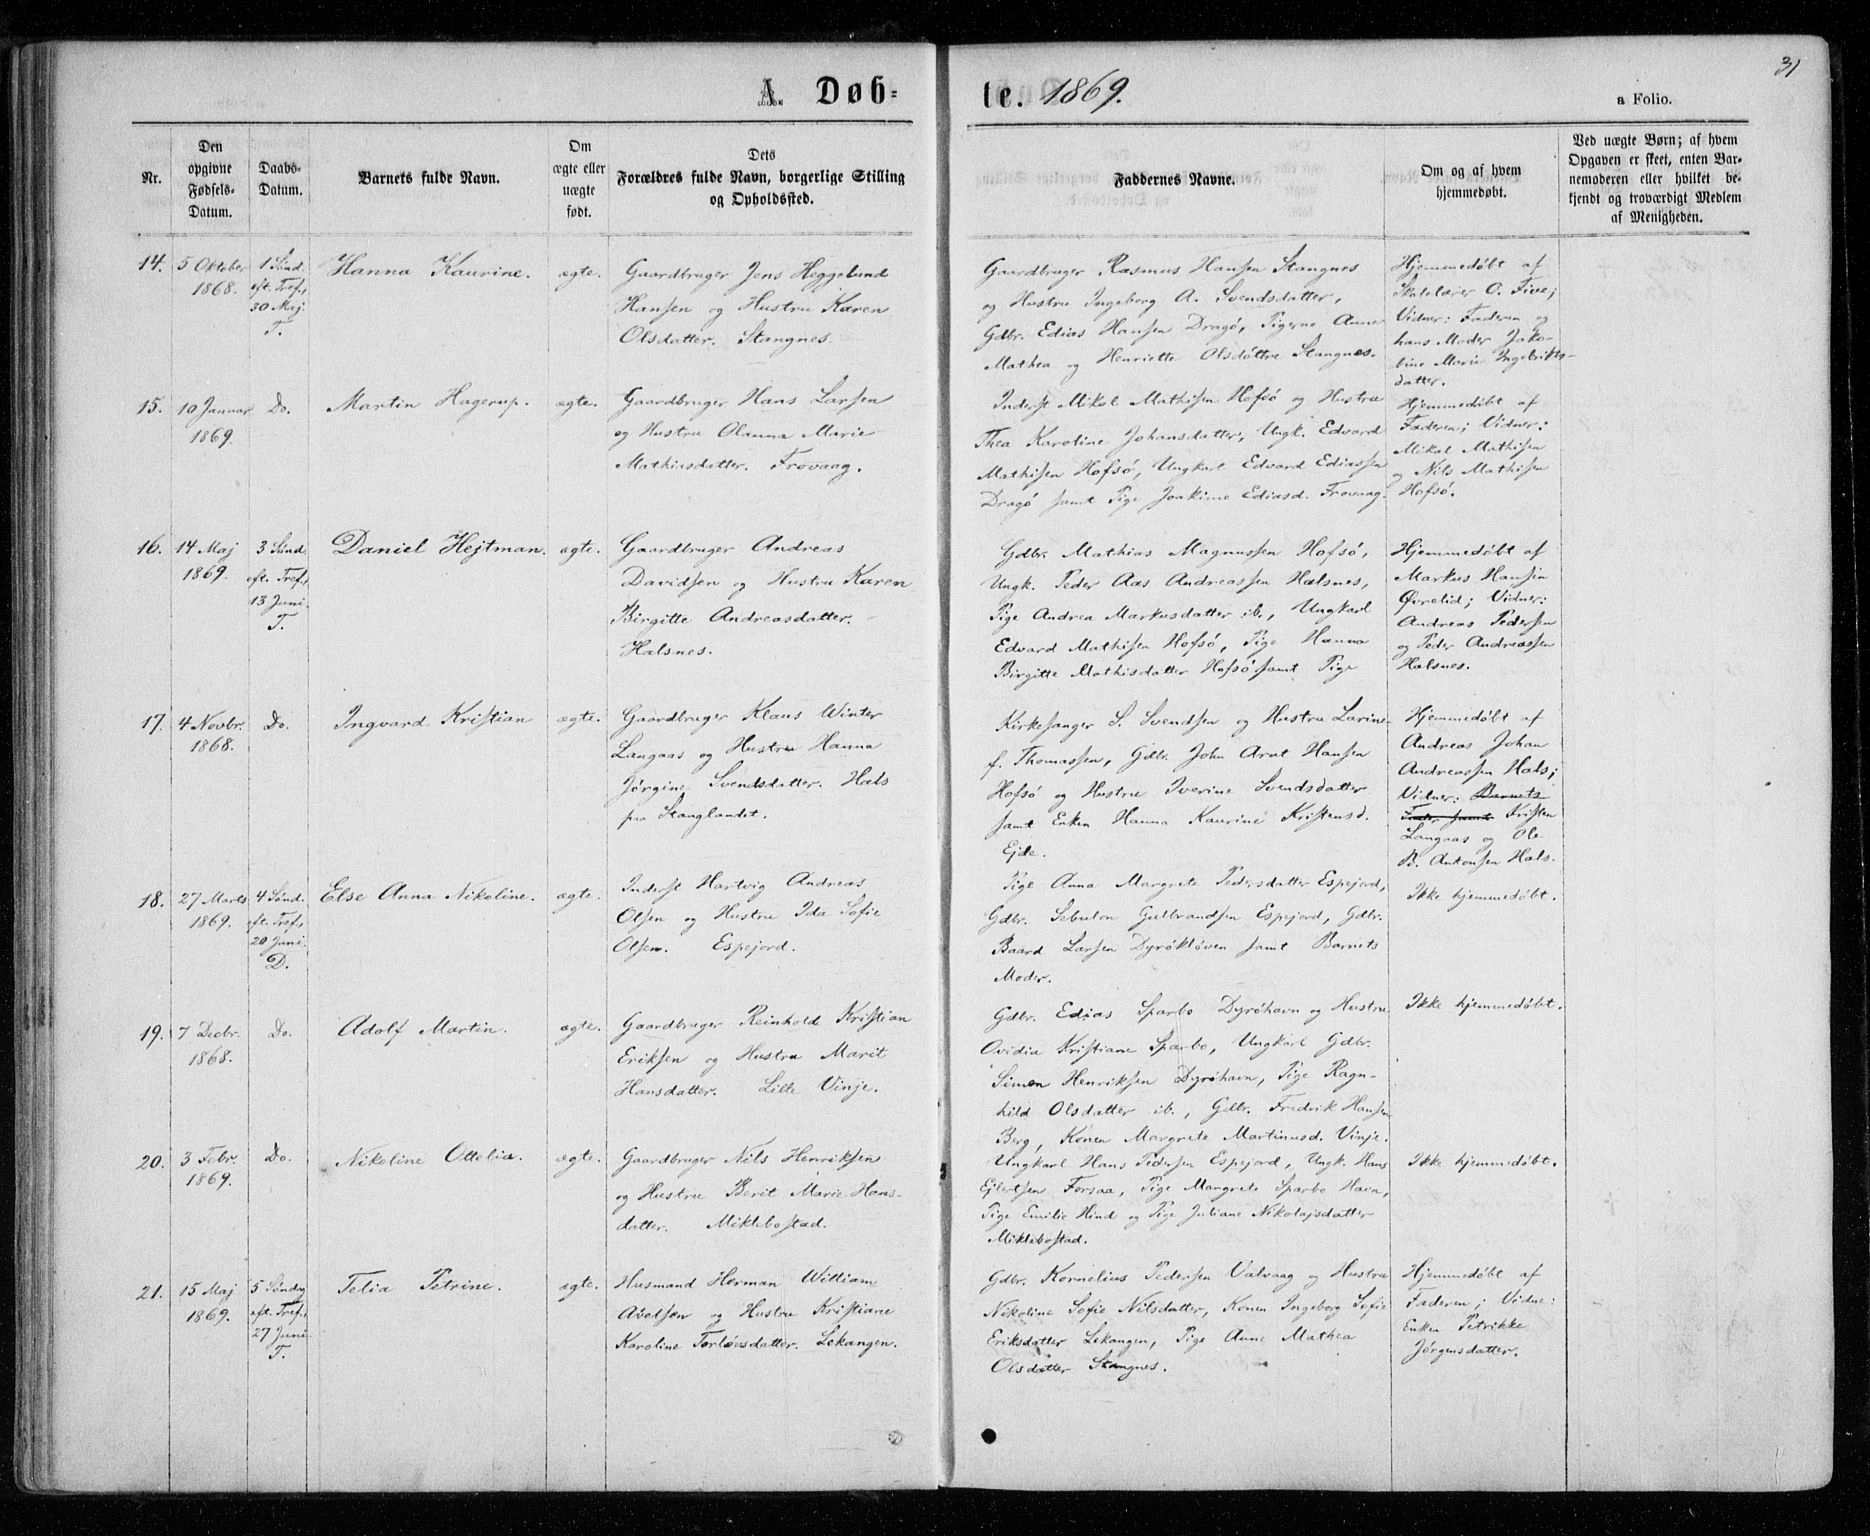 31
A. Døb-
te. 1869.
a Folio.
Nr.
Den
opgivne
Fødsels-
Datum.
Daabs-
Datum.
Barnets fulde Navn.
Om
ægte eller
uægte
født.
Dets
Forældres fulde Navn, borgerlige Stilling
og Opholdssted.
Faddernes Navne.
Om og af hvem
hjemmedøbt.
Ved uægte Børn; af hvem
Opgaven er skeet, enten Bar-
nemoderen eller hvilket be-
kjendt og troværdigt Medlem
af Menigheden.
14.
5 Oktober
1868.
1 Sønd.
eft. Tref.,
30 Maj.
T.
Hanna Kaurine.
ægte.
Gaardbruger Jens Heggelund
Hansen og Hustru Karen
Olsdatter. Stangnes.
Gaardbruger Rasmus Hansen Stangnes
og Hustru Ingeborg A. Svendsdatter,
Gdbr. Edias Hansen Dragø, Pigerne Anne
Mathea og Henriette Olsdøttre Stangnes.
Hjemmedøbt af
Skolelærer O. Five;
Vidner: Faderen og
hans Moder Jako-
bine Marie Ingebrikts-
datter.
15.
10 Januar
1869.
Do.
Martin Hagerup.
ægte.
Gaardbruger Hans Larsen
og Hustru Olanna Marie
Mathiasdatter. Frovaag.
Inderst Mikal Mathisen Hofsø og Hustru
Thea Karoline Johansdatter, Ungk. Edvard
Mathisen Hofsø, Ungkarl Edvard Ediassen
Dragø samt Pige Joakime Ediasd. Frovaag.
Hjemmedøbt af
Faderen; Vidner:
Mikal Mathisen
og Nils Mathisen
Hofsø.
16.
14 Maj
1869.
3 Sønd.
eft. Tref.,
13 Juni.
T.
Daniel Hejtman.
ægte.
Gaardbruger Andreas
Davidsen og Hustru Karen
Birgitte Andreasdatter.
Halsnes.
Gdbr. Mathias Magnussen Hofsø,
Ungk. Peder Aas Andreassen Halsnes,
Pige Andrea Markusdatter ib., Ungkarl
Edvard Mathisen Hofsø, Pige Hanna
Birgitte Mathisdatter Hofsø samt Pige
Hjemmedøbt af
Markus Hansen
Øvrelid; Vidner:
Andreas Pedersen
og Peder Andreassen
Halsnes.
17.
4 Novbr.
1868.
Do.
Ingvard Kristian
ægte.
Gaardbruger Klaus Winter
Langaas og Hustru Hanna
Jørgine Svendsdatter. Hals
paa Stanglandet.
Kirkesanger S. Svendsen og Hustru Larine
f. Thomassen, Gdbr. John Arnt Hansen
Hofsø og Hustru Iverine Svendsdatter
samt Enken Hanna Kaurine Kristensd.
Ejde.
Hjemmedøbt af
Andreas Johan
Andreassen Hals;
Vidner: Barnets
Fader samt Kristen
Langaas og Ole
B. Antonsen Hals.
18.
27 Marts
1869.
4 Sønd.
eft. Tref.,
20 Juni.
D.
Else Anna Nikoline.
ægte.
Inderst Hartvig Andreas
Olsen og Hustru Ida Sofie
Olsen. Espejord.
Pige Anna Margrete Pedersdatter Espejord,
Gdbr. Sebulon Gulbrandsen Espejord, Gdbr.
Baard Larsen Dyrøkløven samt Barnets
Moder.
Ikke hjemmedøbt.
19.
7 Decbr.
1868.
Do.
Adolf Martin.
ægte.
Gaardbruger Reinholdt Kristian
Eriksen og Hustru Marit
Hansdatter. Lille Vinje.
Gdbr. Edias Sparbo Dyrøhavn og Hustru
Ovidia Kristiane Sparbo, Ungkarl Gdbr.
Simon Henriksen Dyrøhavn, Pige Ragn-
hild Olsdatter ib., Gdbr. Fredrik Hansen
Berg, Konen Margrete Martinusd. Vinje.
Ikke hjemmedøbt.
20.
3 Febr.
1869.
Do.
Nikoline Ottelia.
ægte.
Gaardbruger Nils Henriksen
og Hustru Berit Marie Hans-
datter. Miklebostad.
Ungkarl Hans Pedersen Espejord, Ungk. Hans
Ejlertsen Forsaa, Pige Margrete Sparbo Havn,
Pige Emilie Hind og Pige Juliane Nikolajsdatter
Miklebostad.
Ikke hjemmedøbt.
21.
15 Maj
1869.
5 Søndag
eft. Tref.,
27 Juni.
T.
Telia Petrine.
ægte.
Husmand Herman William
Abelsøn og Hustru Kristiane
Karoline Torløvsdatter. Lekangen.
Gdbr. Kornelius Pedersen Valvaag og Hustru
Nikoline Sofie Nilsdatter, Konen Ingeborg Sofie
Eriksdatter Lekangen, Pige Anne Mathea
Olsdatter Stangnes.
Hjemmedøbt af
Faderen; Vidne:
Enken Petrikke
Jørgensdatter.